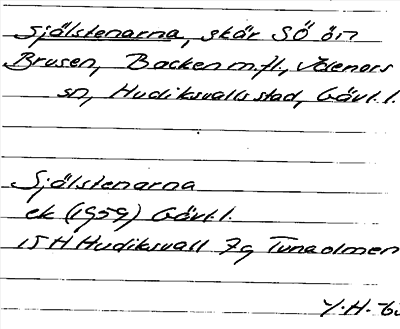 Själstenarna, skär SÖ ön
Brusen, Backen m.fl.,
sn, Hudiksvalls stad, Gävl.l.
Själstenarna
ek (1959) Gävl.l.
15H Hudiksvall 7g Tunaolmen
Y.H.